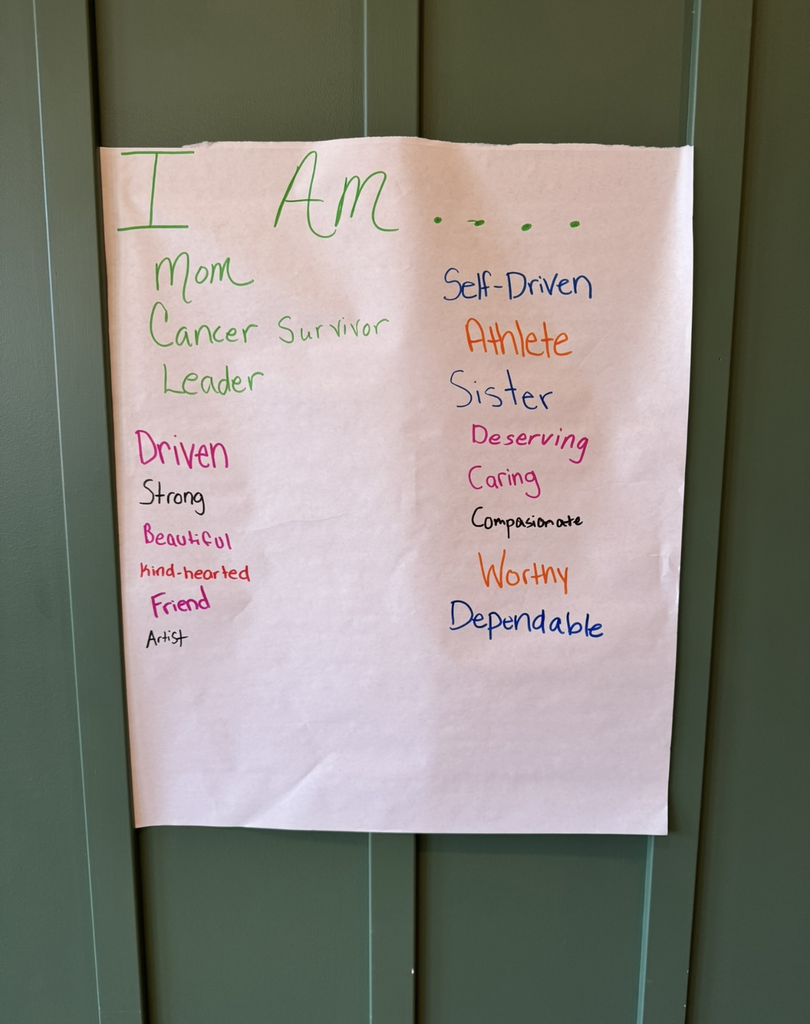 I Am....
Mom
Cancer Survivor
Leader
Driven
Strong
Beautiful
Kind-hearted
Friend
Artist
Self-Driven
Athlete
Sister
Deserving
Caring
Compasionate
Worthy
Dependable